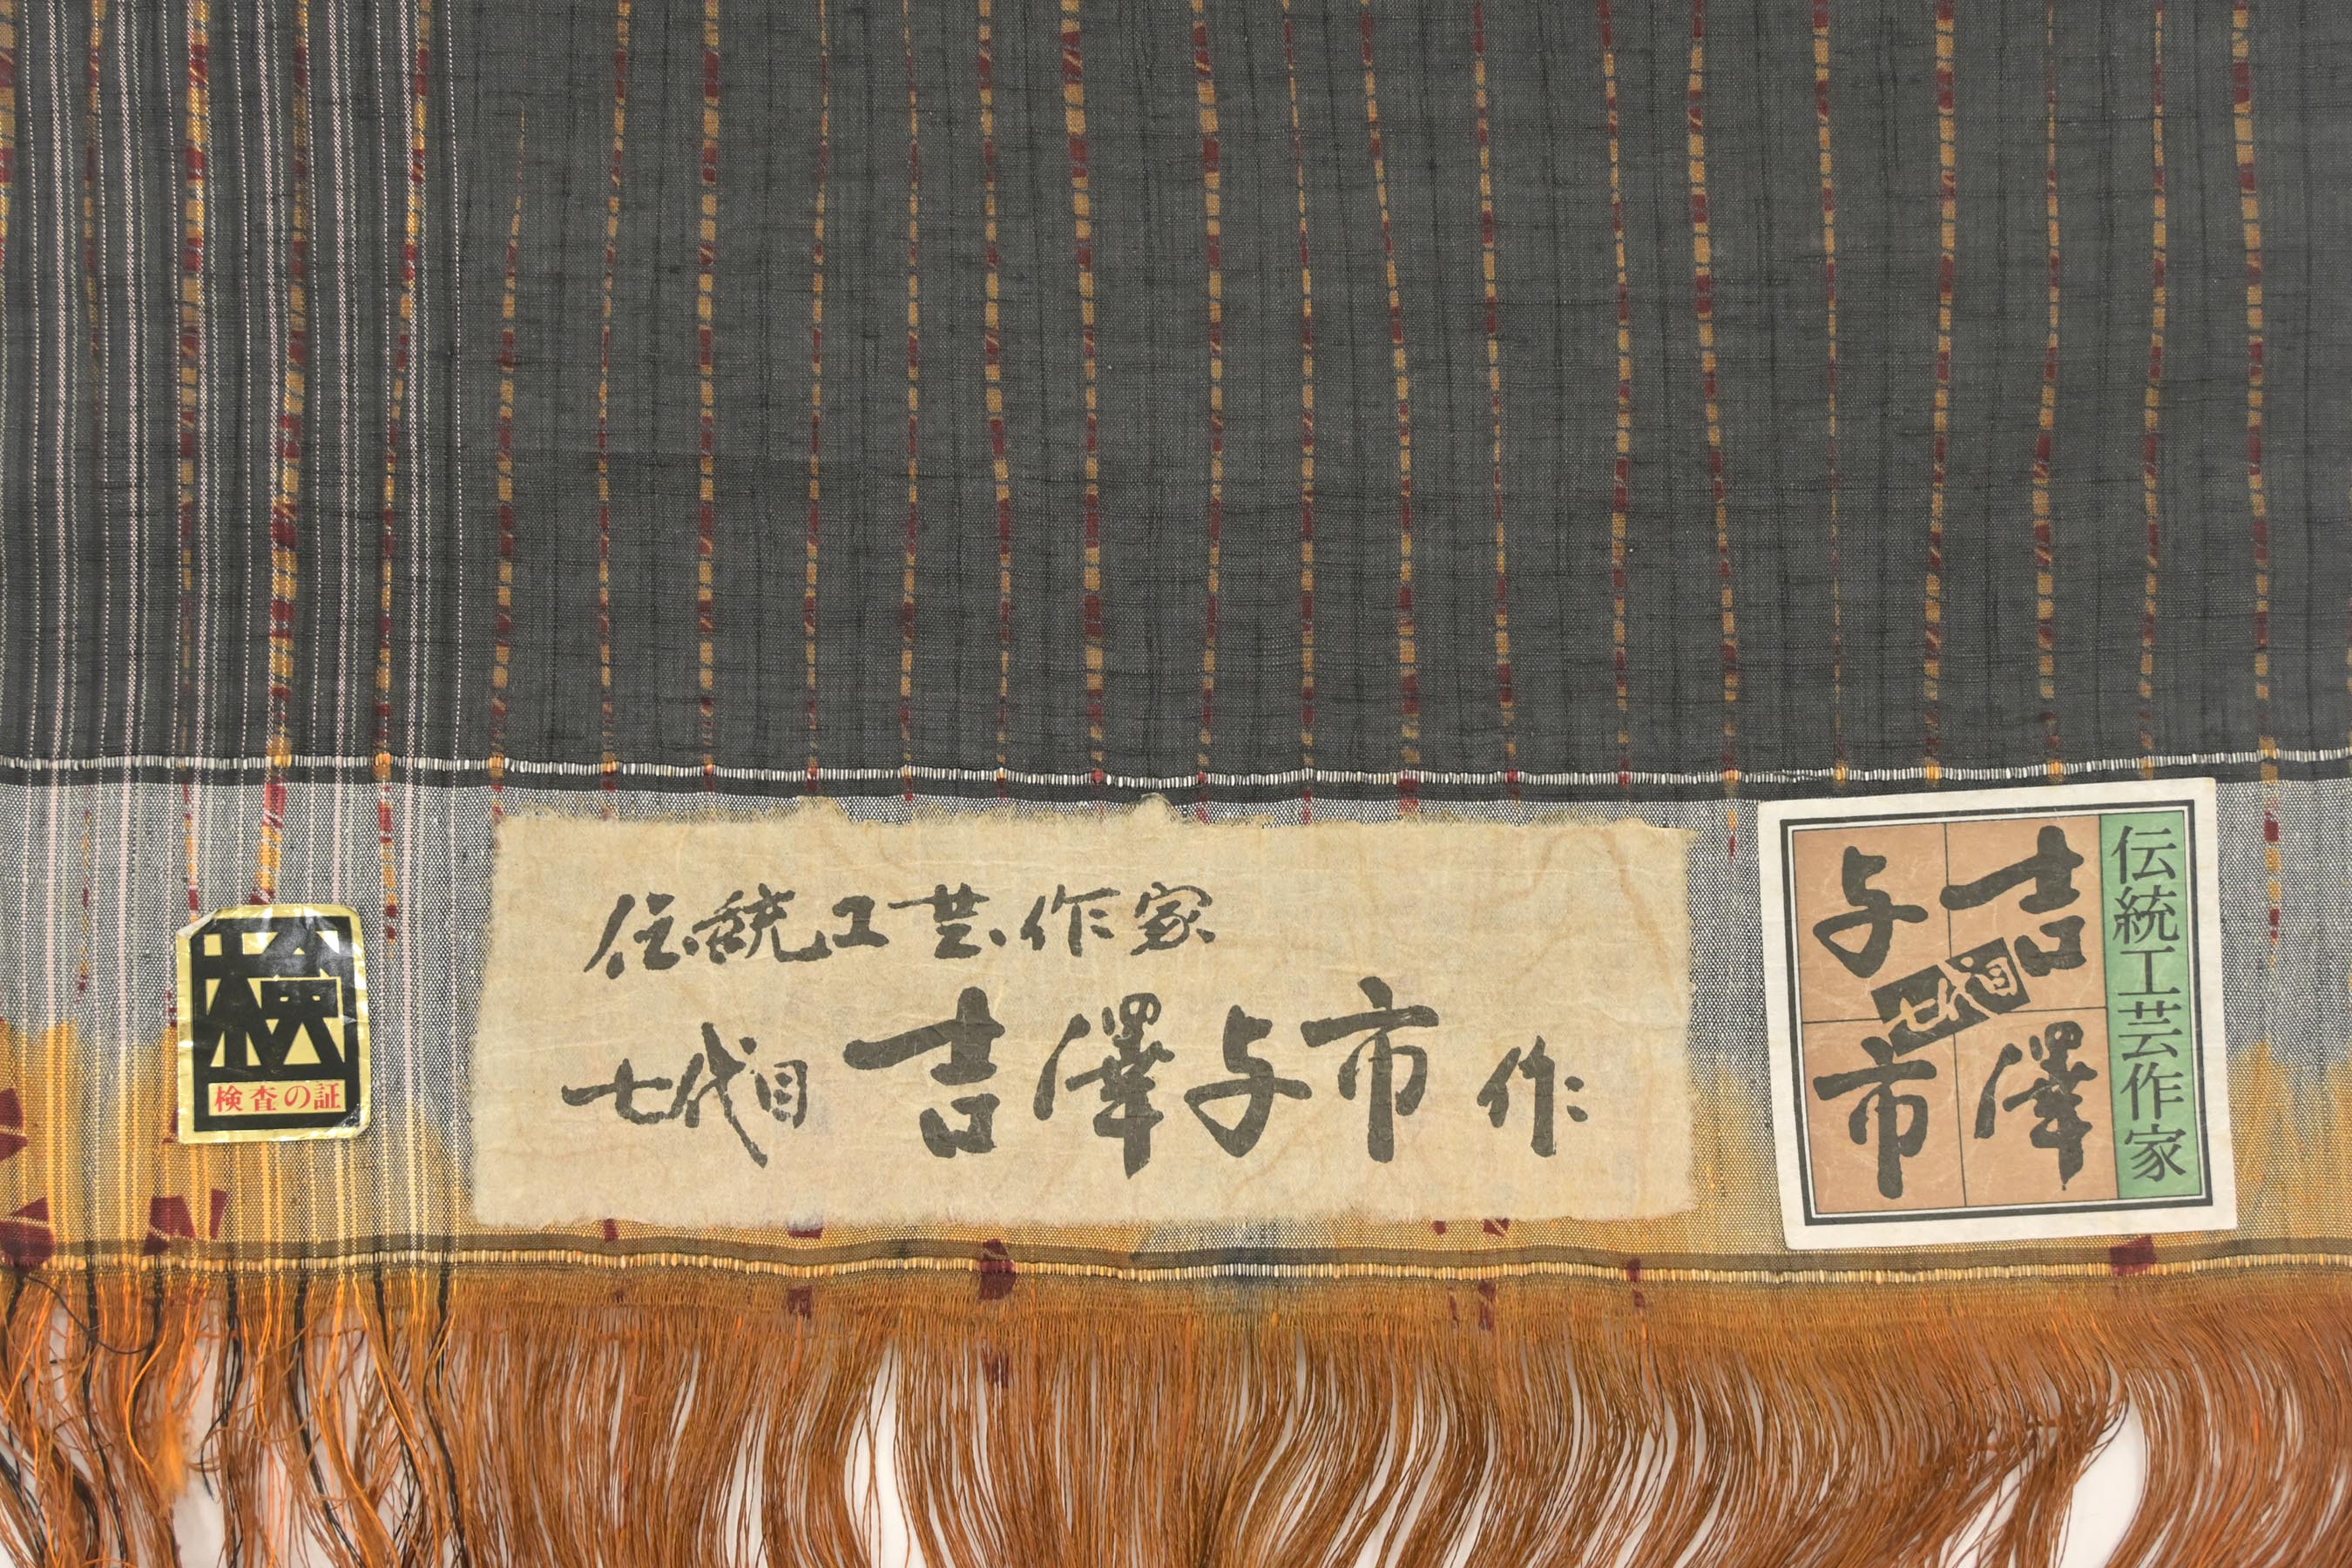 検
検査の証
伝統工芸作家
七代目 吉澤与市 作
伝統工芸作家
吉澤
与市
七代目